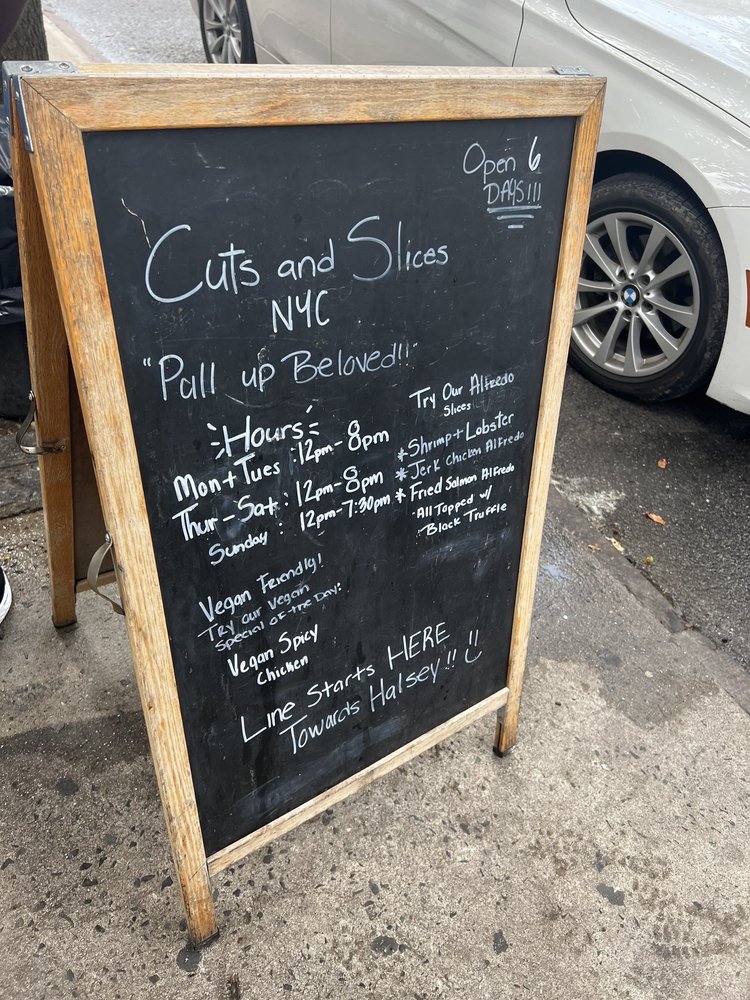 Open 6
DAYS!!!
Cuts and Slices
NYC
"Pull up Beloved!!"
Hours
Mon + Tues : 12pm-8pm
Thur-Sat : 12pm-8pm
Sunday : 12pm-7:30pm
Try Our Alfredo
Slices
* Shrimp + Lobster
* Jerk Chicken Alfredo
* Fried Salmon Alfredo
All Topped w/
Black Truffle
Vegan Friendly!
Try our Vegan
Special of the Day:
Vegan Spicy
Chicken
Line Starts HERE
Towards Halsey!!